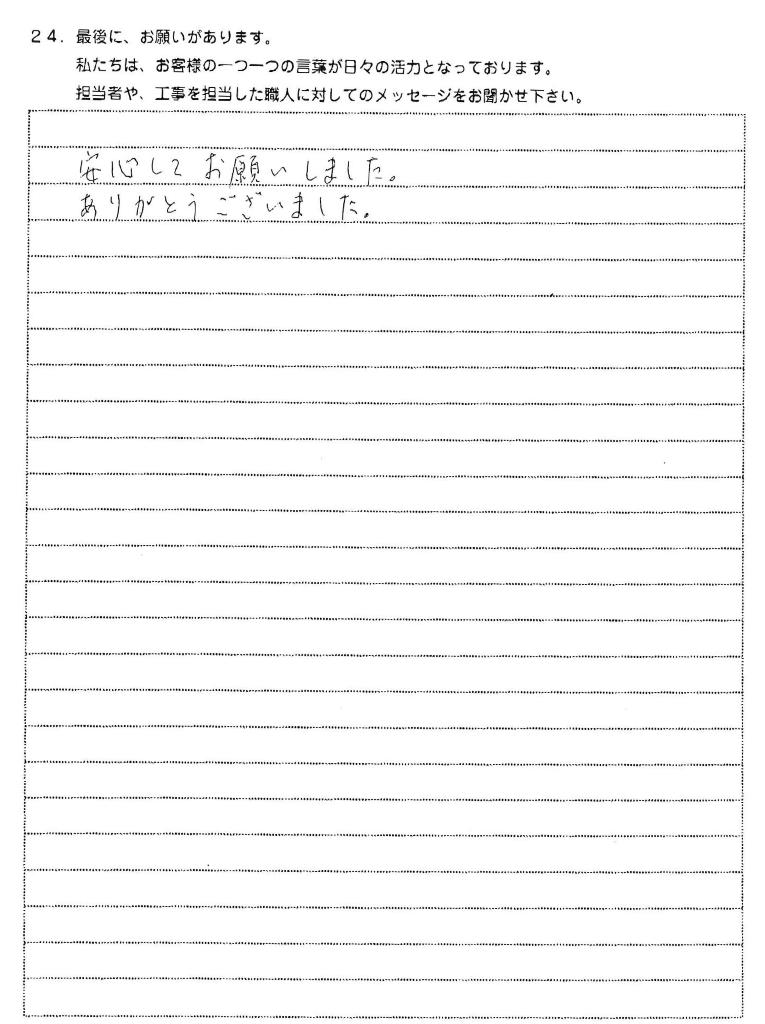 24. 最後に、お願いがあります。
私たちは、お客様の一つ一つの言葉が日々の活力となっております。
担当者や、工事を担当した職人に対してのメッセージをお聞かせ下さい。
安心してお願いしました。
ありがとうございました。